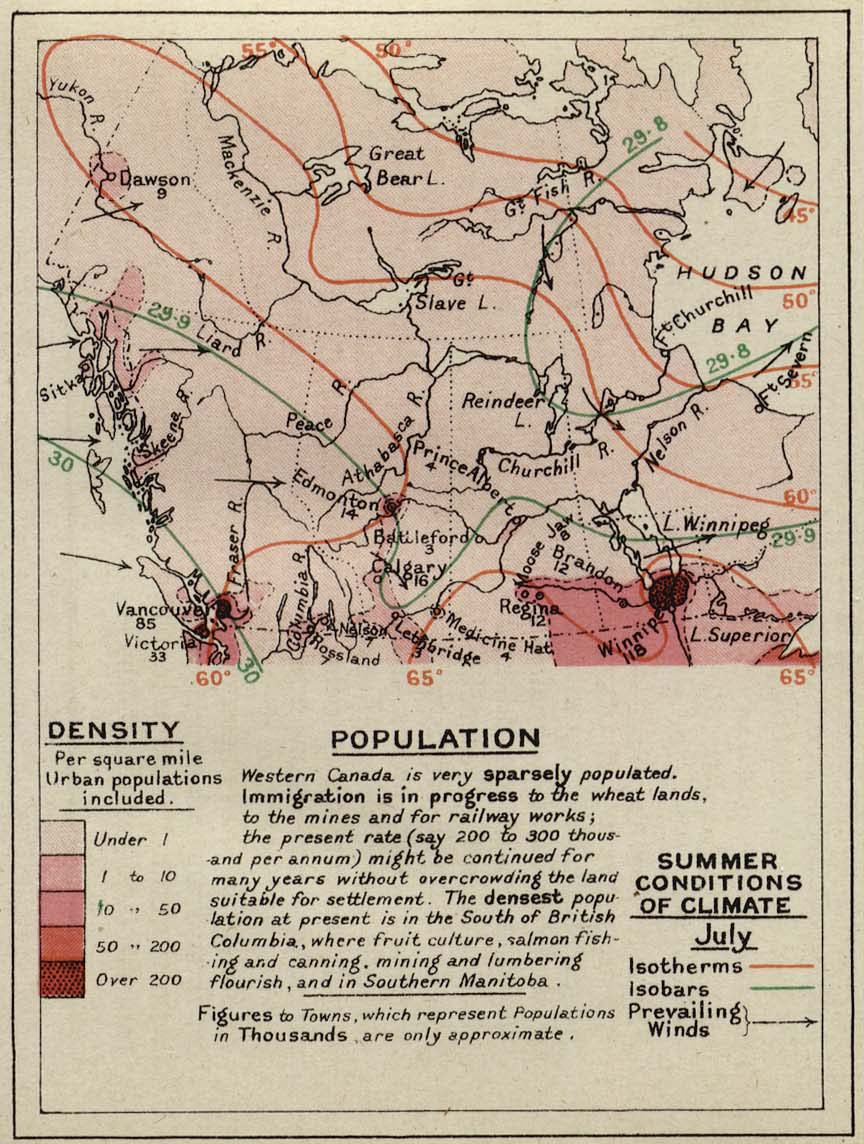 55°
50°
Yukon R.
29·8
Great
Bear L.
Dawson
9
Mackenzie R.
Gt Fish R.
45°
HUDSON
Gt
Slave L.
50°
Ft Churchill
BAY
29·9
Liard R.
29·8
Ft Severn
55°
Sitka
Reindeer
L.
Peace R.
Skeena R.
Athabasca R.
Nelson R.
30
Prince Albert
4
Churchill R.
Edmonton
14
60°
L. Winnipeg
29·9
Battleford
3
Moose Jaw
8
Brandon
12
Calgary
16
Fraser R.
Columbia R.
Vancouver
85
Regina
12
Medicine Hat
4
Nelson
7
Lethbridge
3
Winnipeg
118
L. Superior
Victoria
33
Rossland
7
60°
30
65°
65°
DENSITY
Per square mile
Urban populations
included.
Under 1
1 to 10
10 " 50
50 " 200
Over 200
POPULATION
Western Canada is very sparsely populated.
Immigration is in progress to the wheat lands,
to the mines and for railway works;
the present rate (say 200 to 300 thous-
-and per annum) might be continued for
many years without overcrowding the land
suitable for settlement. The densest popu-
lation at present is in the South of British
Columbia, where fruit culture, salmon fish-
-ing and canning, mining and lumbering
flourish, and in Southern Manitoba.
Figures to Towns, which represent Populations
in Thousands, are only approximate.
SUMMER
CONDITIONS
OF CLIMATE
July
Isotherms
Isobars
Prevailing
Winds